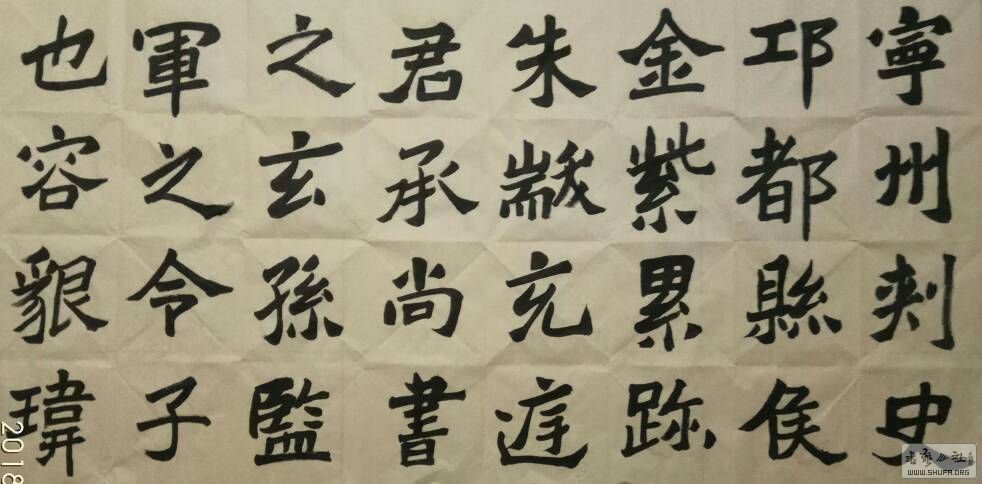 寧州刺史
邛都縣侯
金紫累跡
朱黻充庭
君承尚書
之玄孫監
軍之令子
也容貌瑋
2018
WWW.SHUFA.ORG